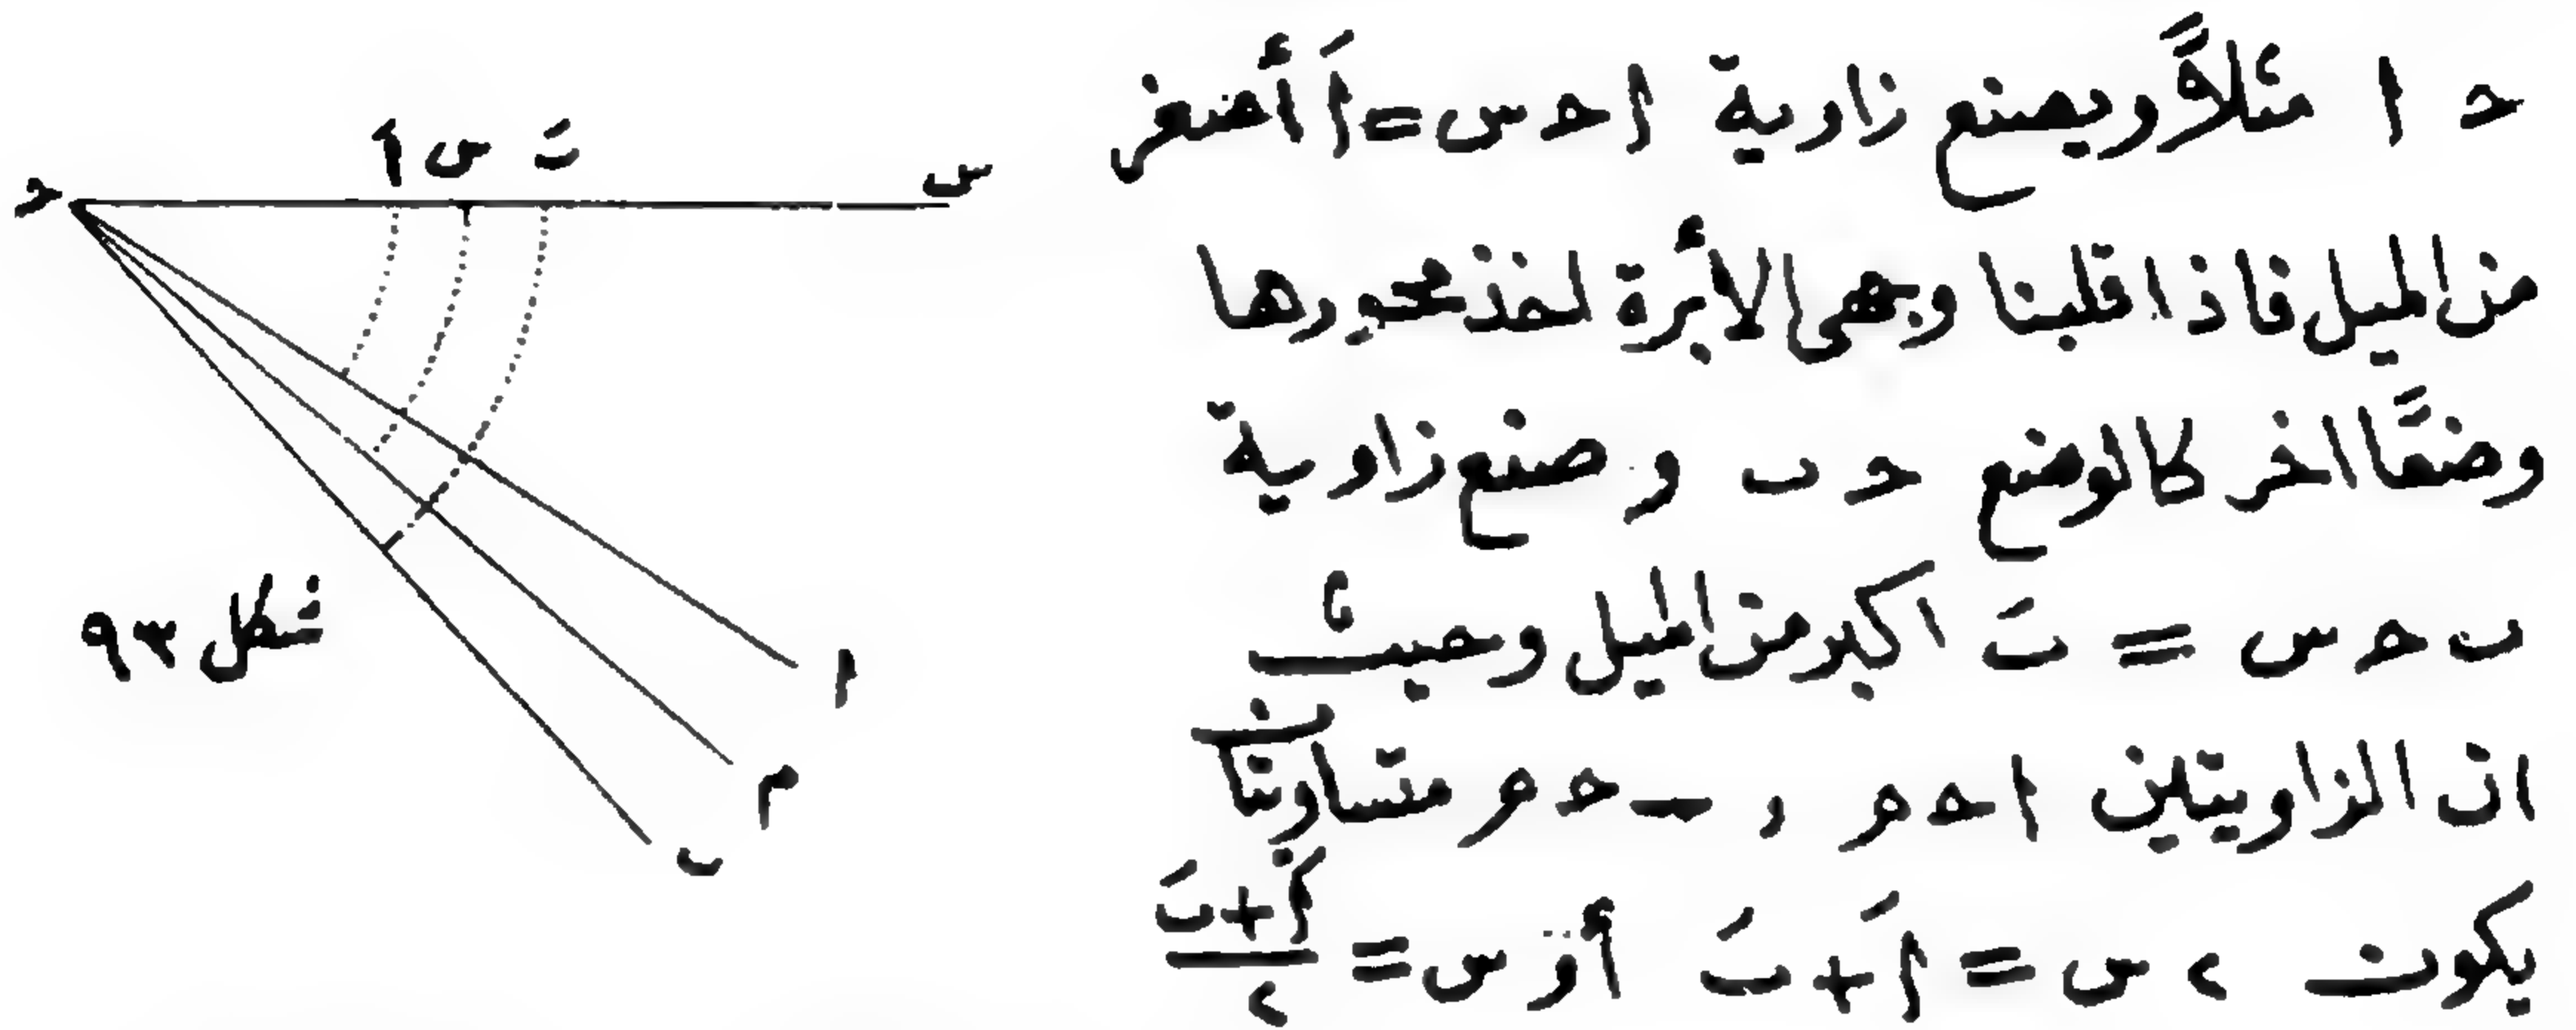 حـ ا مثلاً ويصنع زاوية ا حـ س = اَ أصغر
من الميل فاذا قلبنا وجهى الأبرة لخذ محورها
وضعًا اخر كالوضع حـ ٮ وصنع زاوية
ٮ حـ س = ٮَ اكبر من الميل وحيث
ان الزاويتين ا حـ م , ٮ حـ م متساويتان
يكون ٢ س = اَ + ٮَ أو س = (اَ + ٮَ) / ٢
ٮَ س اَ
حـ
س
ا
م
ٮ
شكل ٩٣